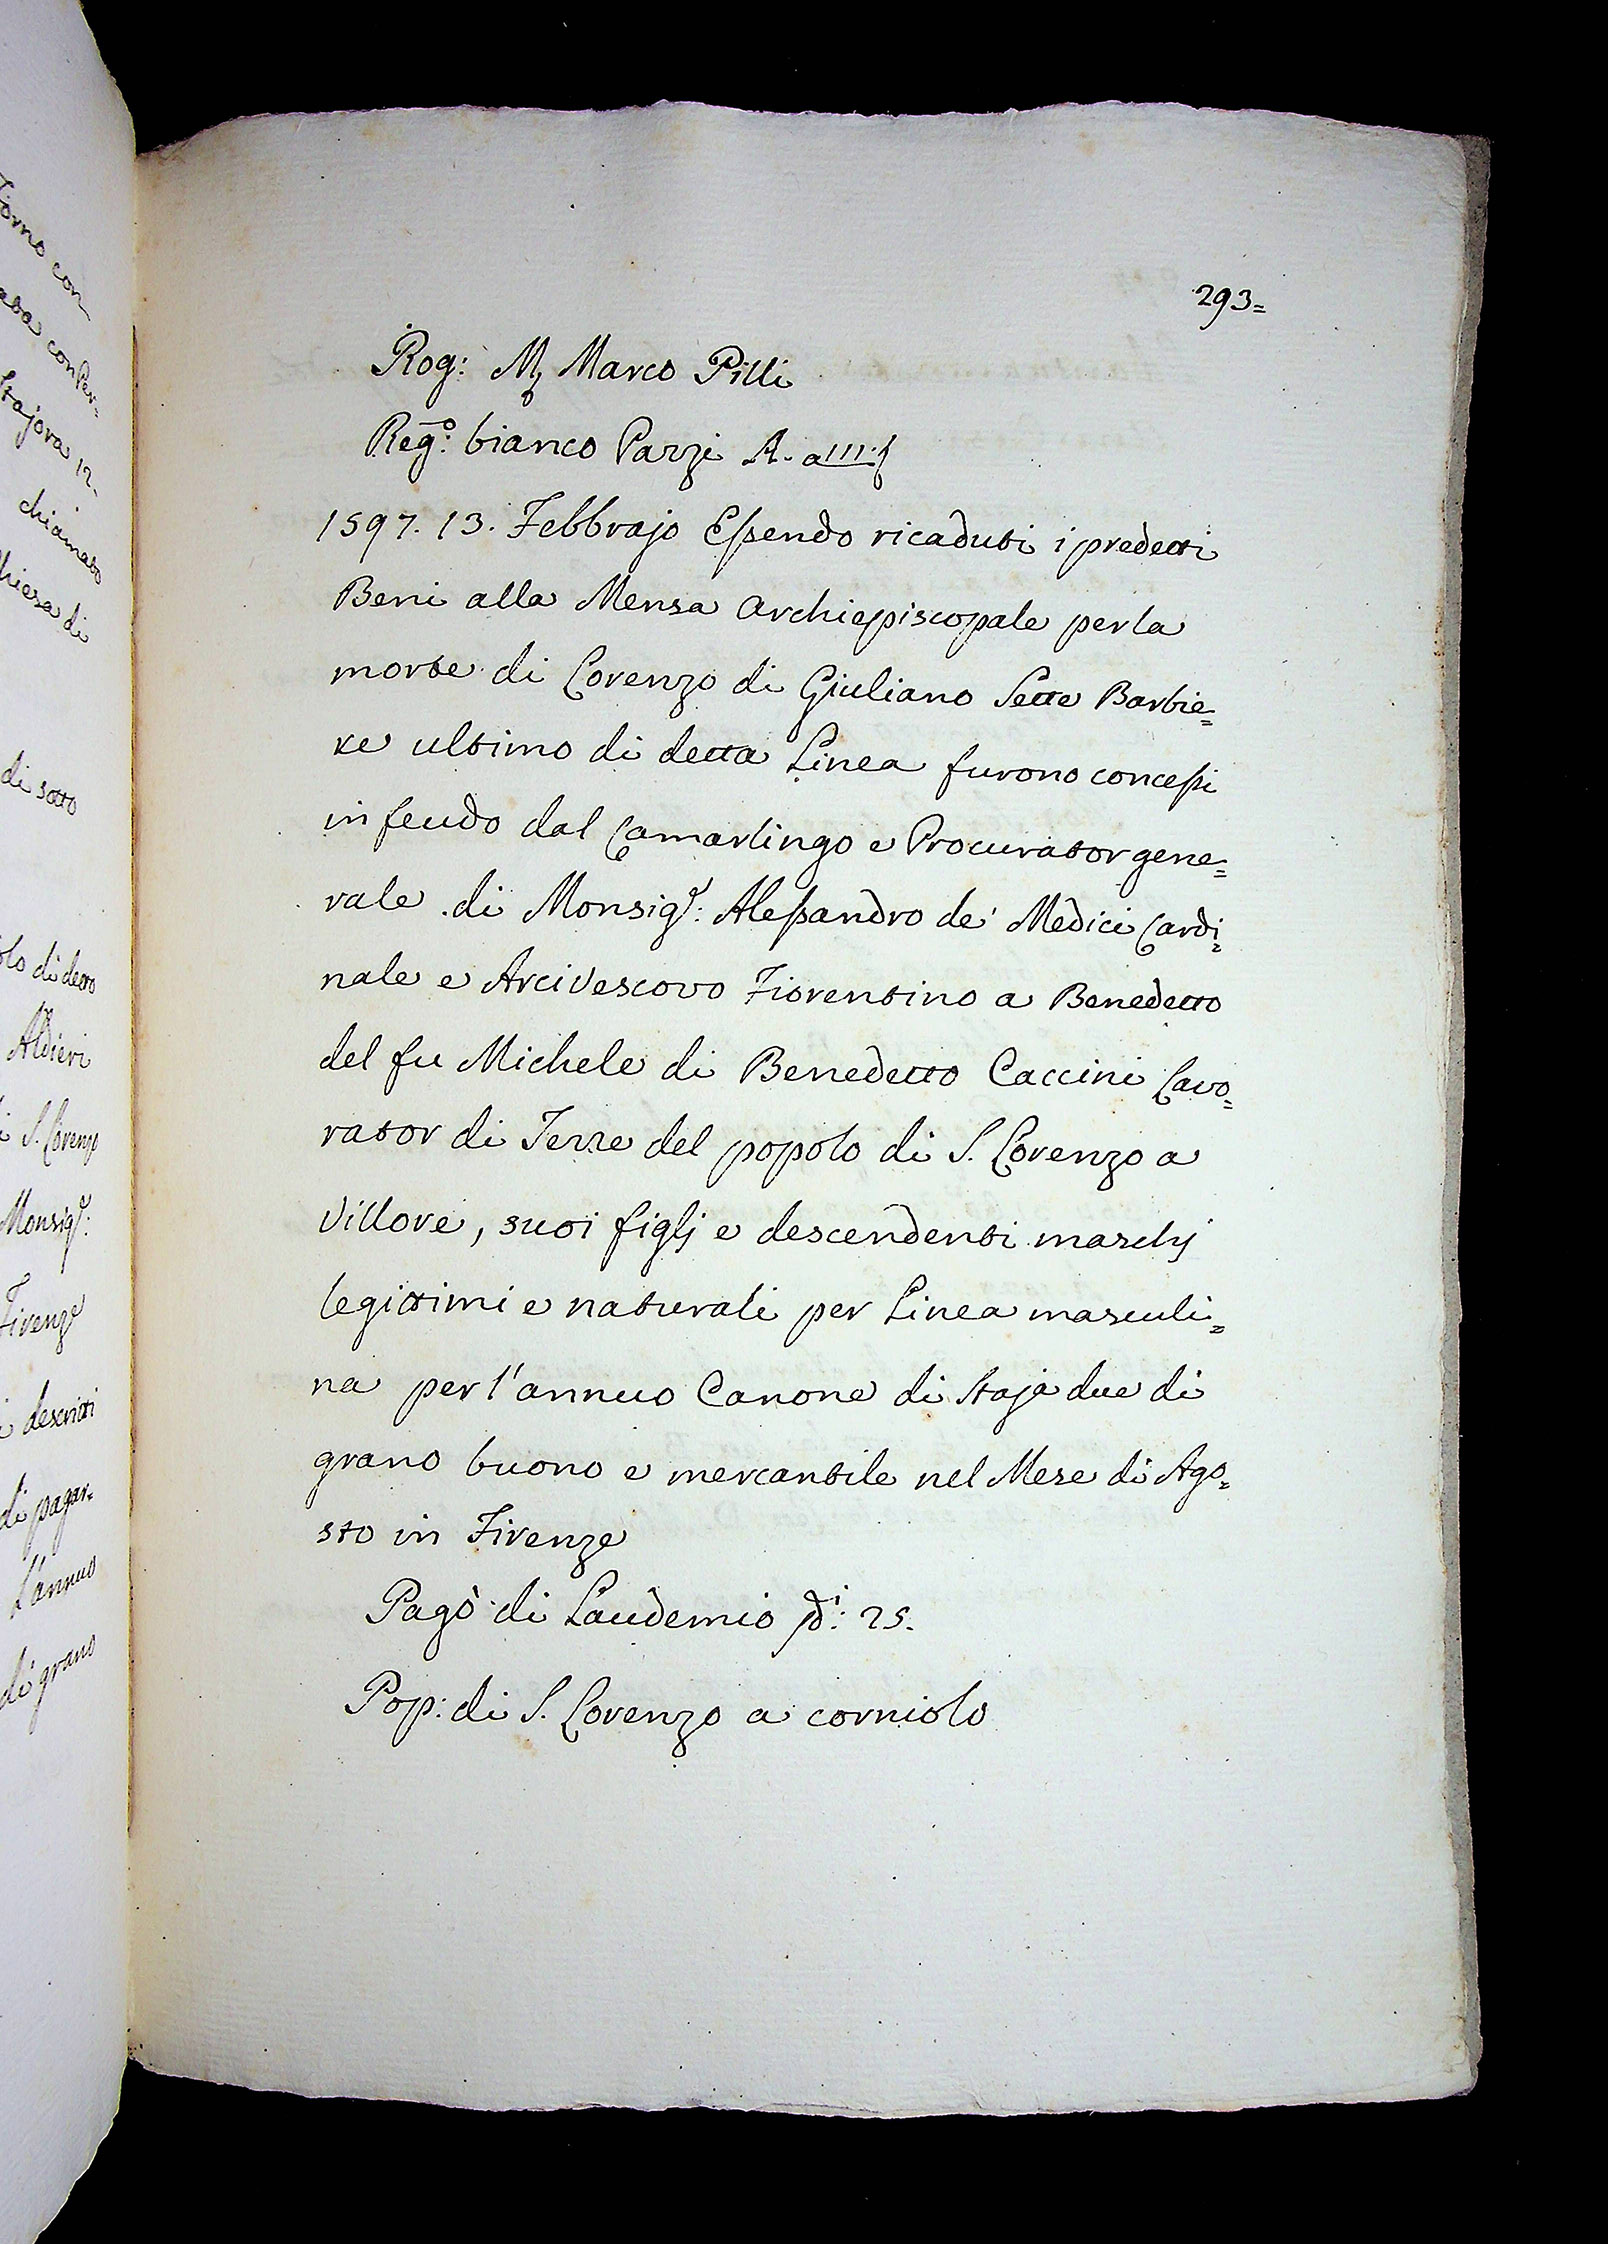 orno con
ata con Per=
stajora 12.
chiamato
hiesa di
di sotto
olo di detto
Aldieri
i S. Lorenzo
Monsig.r:
Firenze
i descritti
di pagar=
l'annuo
di grano
293=
Rog: M. Marco Pilli
Reg.o: bianco Pazzi A. a 111.
1597. 13. Febbrajo Essendo ricaduti i predetti
Beni alla Mensa Archiepiscopale per la
morte di Lorenzo di Giuliano Sette Barbie=
re ultimo di detta Linea furono concessi
in feudo dal Camarlingo e Procurator gene=
rale di Monsig.r: Alessandro de' Medici Cardi=
nale e Arcivescovo Fiorentino a Benedetto
del fu Michele di Benedetto Caccini Lavo=
rator di Terre del popolo di S. Lorenzo a
Villore, suoi figlj e descendenti maschj
legittimi e naturali per Linea masculi=
na per l'annuo Canone di Staja due di
grano buono e mercantile nel Mese di Ago=
sto in Firenze
Pagò di Laudemio 25.
Pop: di S. Lorenzo a corniolo